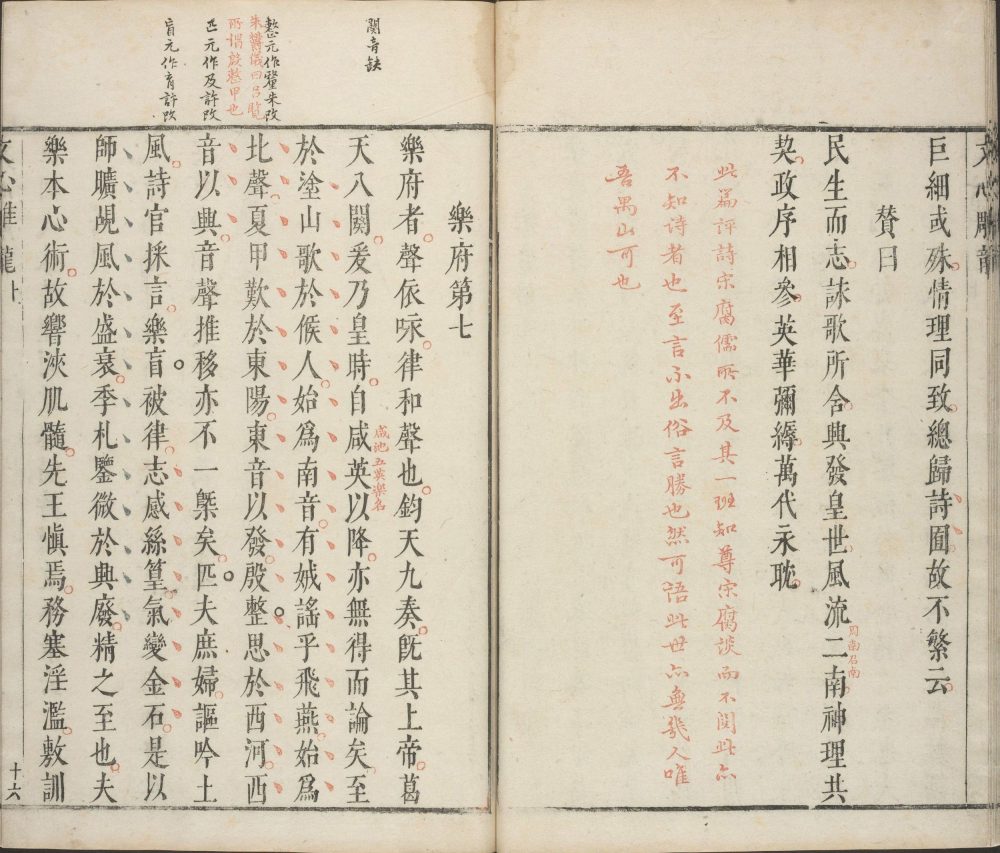 文心雕龍
巨細或殊情理同致總歸詩囿故不繁云
贊曰
民生而志詠歌所含興發皇世風流二南神理共
周南召南
契政序相參英華彌縟萬代永耽
此篇評詩宋腐儒所不及其一班知尊宋腐談而不閱此亦
不知詩者也至言不出俗言勝也然可語此世亦無幾人唯
吾禺山可也
樂府第七
樂府者聲依咏律和聲也鈞天九奏既其上帝葛
闋音缺
天八闋爰乃皇時自咸英以降亦無得而論矣至
咸池五英樂名
於塗山歌於候人始爲南音有娀謠乎飛燕始爲
北聲夏甲歎於東陽東音以發殷整思於西河西
整元作釐朱改
朱鬱儀曰呂覽
所謂殷整甲也
音以興音聲推移亦不一槩矣匹夫庶婦謳吟土
匹元作及許改
風詩官採言樂盲被律志感絲篁氣變金石是以
盲元作育許改
師曠覘風於盛衰季札鑒微於興廢精之至也夫
樂本心術故響浹肌髓先王愼焉務塞淫濫敷訓
文心雕龍
十六